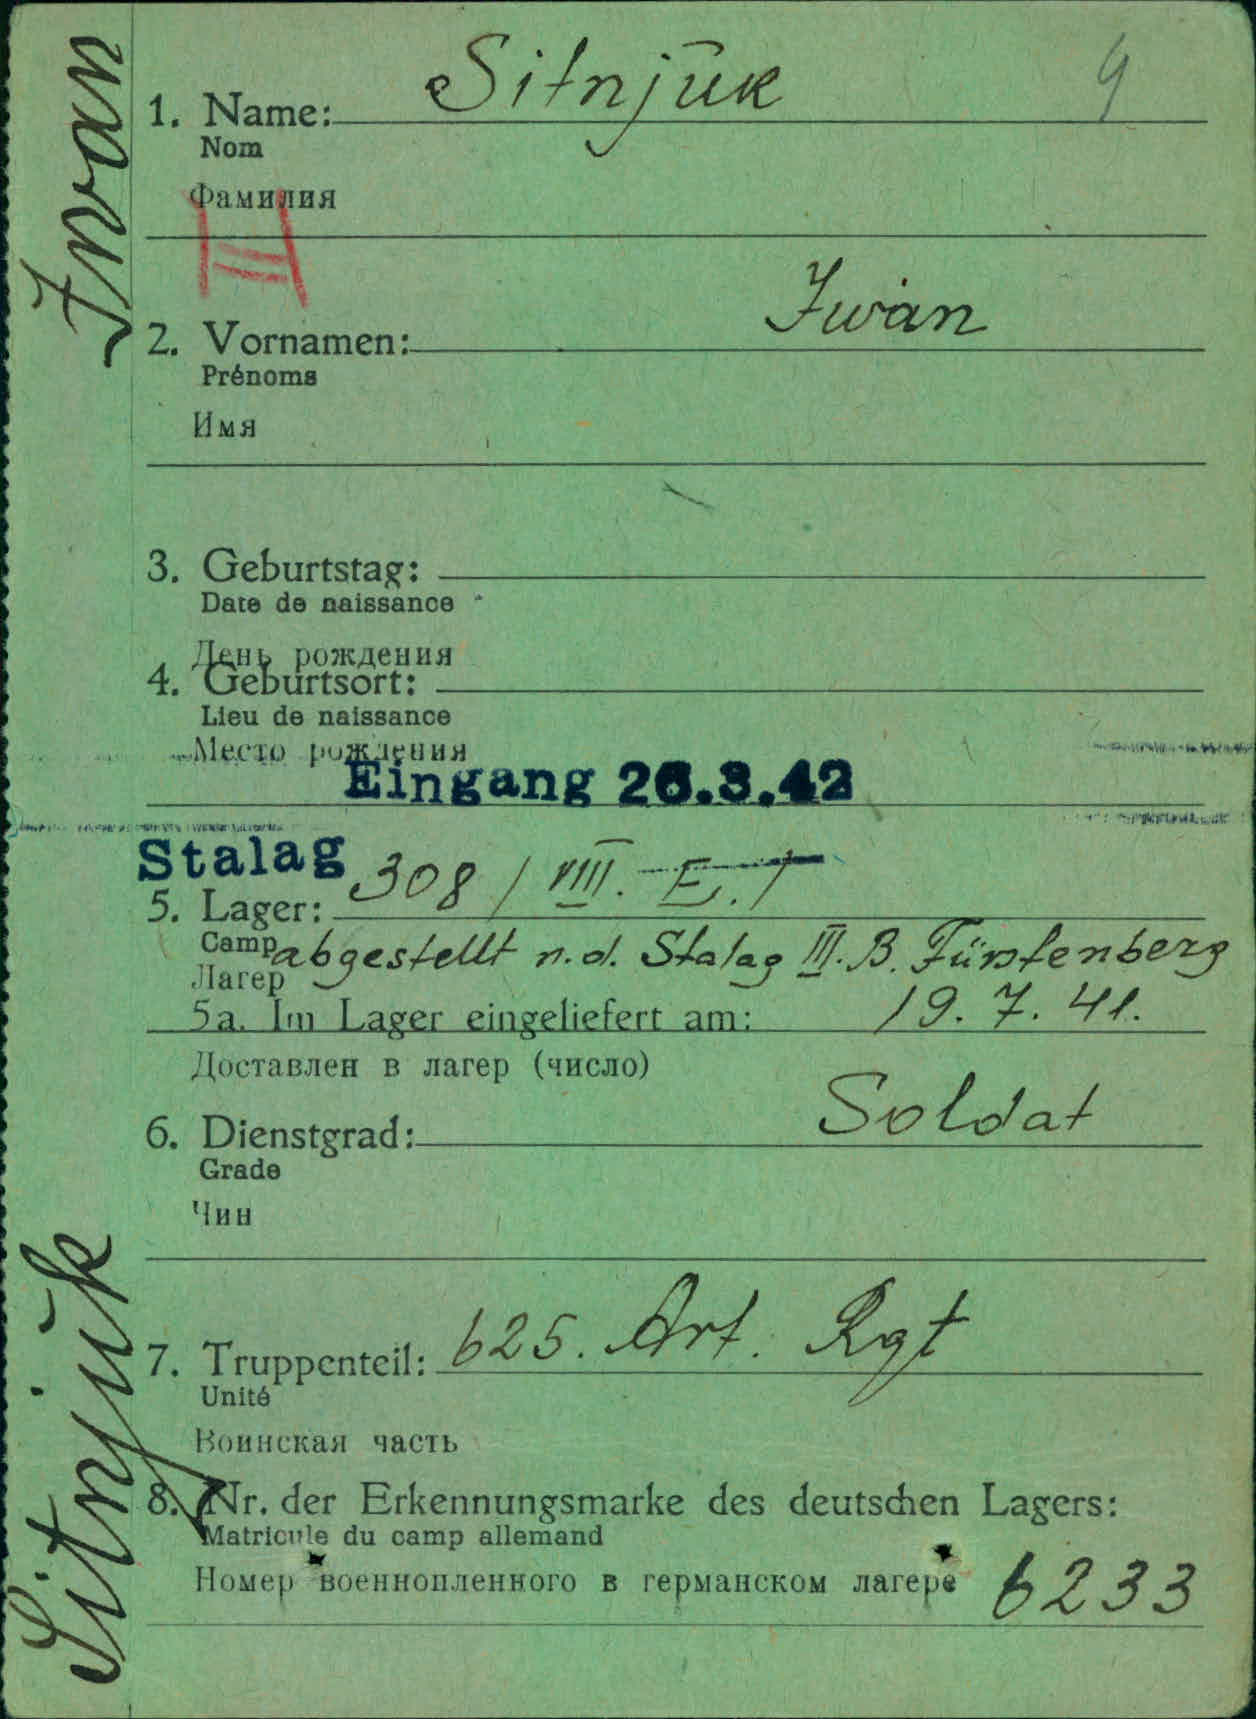 Iwan
Sitnjŭk
1. Name: Sitnjŭk
9
Nom
Фамилия
2. Vornamen: Iwan
Prénoms
Имя
3. Geburtstag:
Date de naissance
День рождения
4. Geburtsort:
Lieu de naissance
Место рождения
Eingang 26.3.42
Stalag 308 / VIII. E. /
5. Lager:
Camp abgestellt n. d. Stalag III. B. Fürstenberg
Лагер
5a. Im Lager eingeliefert am: 19. 7. 41.
Доставлен в лагер (число)
6. Dienstgrad: Soldat
Grade
Чин
7. Truppenteil: 625. Art. Rgt
Unité
Воинская часть
8. Nr. der Erkennungsmarke des deutschen Lagers:
Matricule du camp allemand
Номер военнопленного в германском лагере 6233